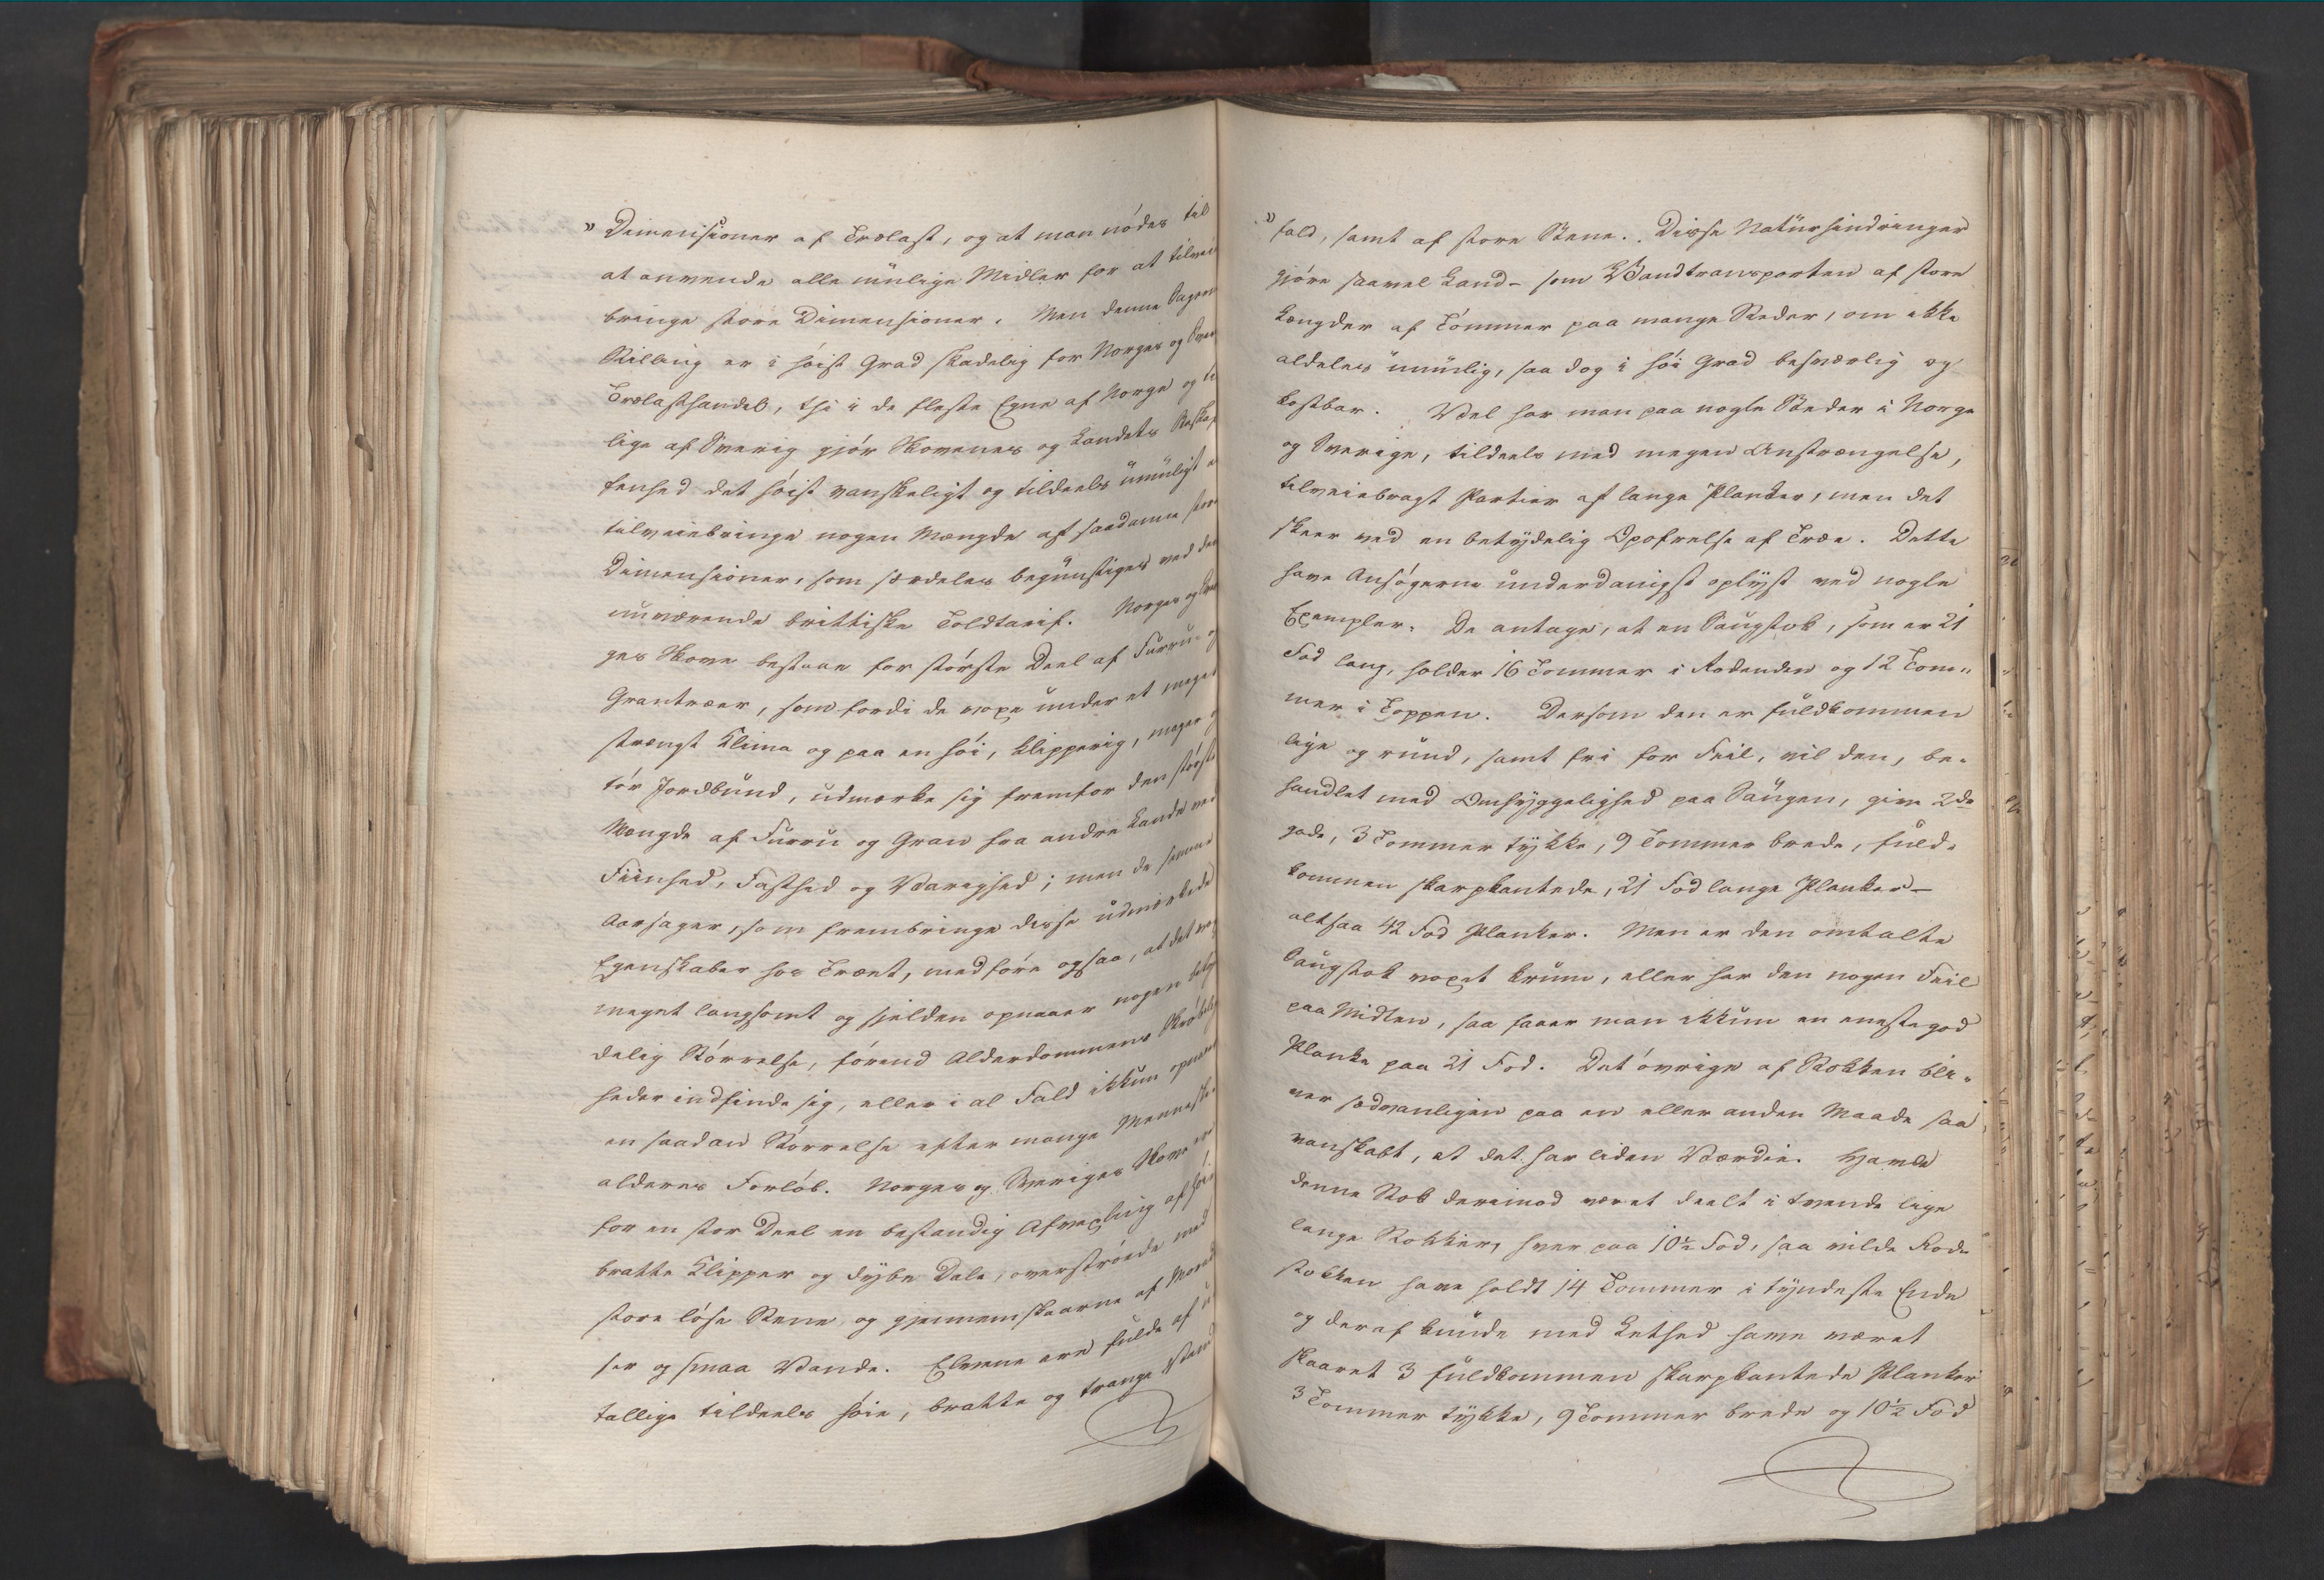 " Dimensioner af Trælast, og at man nödes til
at anvende alle mulige Midler for at tilvei
bringe store Dimensioner. Men denne Sagens
Stilling er i höist Grad skadelig for Norges og Sver
Trælasthandel, thi i de fleste Egne af Norge og
lige af Sverig gjör Skovenes og Landets Beskaf
fenhed det höist vanskeligt og tildeels umuligt a
tilveiebringe nogen Mængde af saadanne store
Dimensioner, som særdeles begunstiges ved den
nuværende brittiske Toldtarif. Norges og Sver
ges Skove bestaae for störste Deel af Furru- og
Grantræer, som fordi de voxe under et meget
strengt Klima og paa en höi, klipperig, mager og
tör Jordbund, udmærke sig fremfor den störste
Mængde af Furru og Gran fra andre Lande ved
Fiinhed, Fasthed og Varighed; men de samme
Aarsager, som frembringe disse udmærkede
Egenskaber hos Træet, medföre ogsaa, at det vox
meget langsomt og sjelden opnaaer nogen bety
delig Störrelse, förend Alderdommens Skröbelig
heder indfinde sig, eller i al Fald ikkun opnaaer
en saadan Störrelse efter mange Menneske-
alderes Forlöb. Norges og Sveriges Skove ere
for en stor Deel en bestandig Afvexling af höie
bratte Klipper og dybe Dale, overströede med
store löse Stene, og gjennemskaarne af Mora
ser og smaa Vande. Elvene ere fulde af u
tallige tildeels höie, bratte og trange
" fald, samt af store Stene. Disse Naturhindringer
gjöre saavel Land- som Vandtransporten af store
Længder af Tömmer paa mange Steder, om ikke
aldeles umulig, saa dog i höi Grad besværlig og
kostbar. Vel har man paa nogle Steder i Norge
og Sverige, tildeels med megen Anstrængelse,
tilveiebragt Partier af lange Planker, men det
skeer ved en betydelig Opofrelse af Træe. Dette
have Ansögerne underdanigst oplyst ved nogle
Exempler. De antage, at en Saugstok, som er 21
Fod lang, holder 16 Tommer i Rodenden og 12 Tom-
mer i Toppen. Dersom den er fuldkommen
lige og rund, samt fri for Feil, vil den, be-
handlet med Omhyggelighed paa Saugen, give 2de
gode, 3 Tommer tykke, 9 Tommer brede, fuld-
kommen skarpkantede, 21 Fod lange Planker -
altsaa 42 Fod Planker. Men er den omtalte
Saugstok voxet krum, eller har den nogen Feil
paa Midten, saa faaer man ikkun en eneste god
Planke paa 21 Fod. Det övrige af Stokken bli-
ver sædvanligen paa en eller anden Maade saa
vanskabt, at det har liden Værdie. Havde
denne Stok derimod været deelt i tvende lige
lange Stokker, hver paa 10½ Fod, saa vilde Rod-
stokken have holdt 14 Tommer i tyndeste Ende
og deraf kunde med Lethed have været
skaaret 3 fuldkommen skarpkantede Planker
3 Tommer tykke, 9 Tommer brede og 10½ Fod